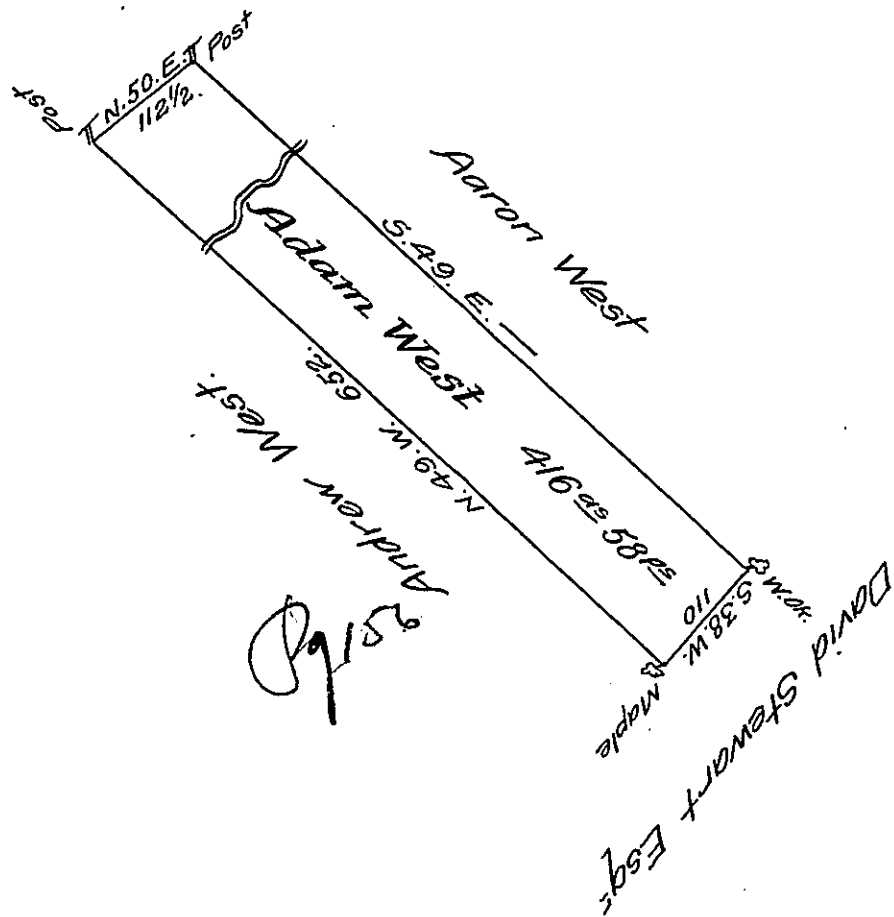 Post
N.50.E.
112½.
Post
Aaron West
S.49. E.
Adam West
416 as 58 ps
652.
N.49.W.
Andrew West
W.Oy.
S.38.W.
110
Maple
David Stewart Esqr
Pg 156